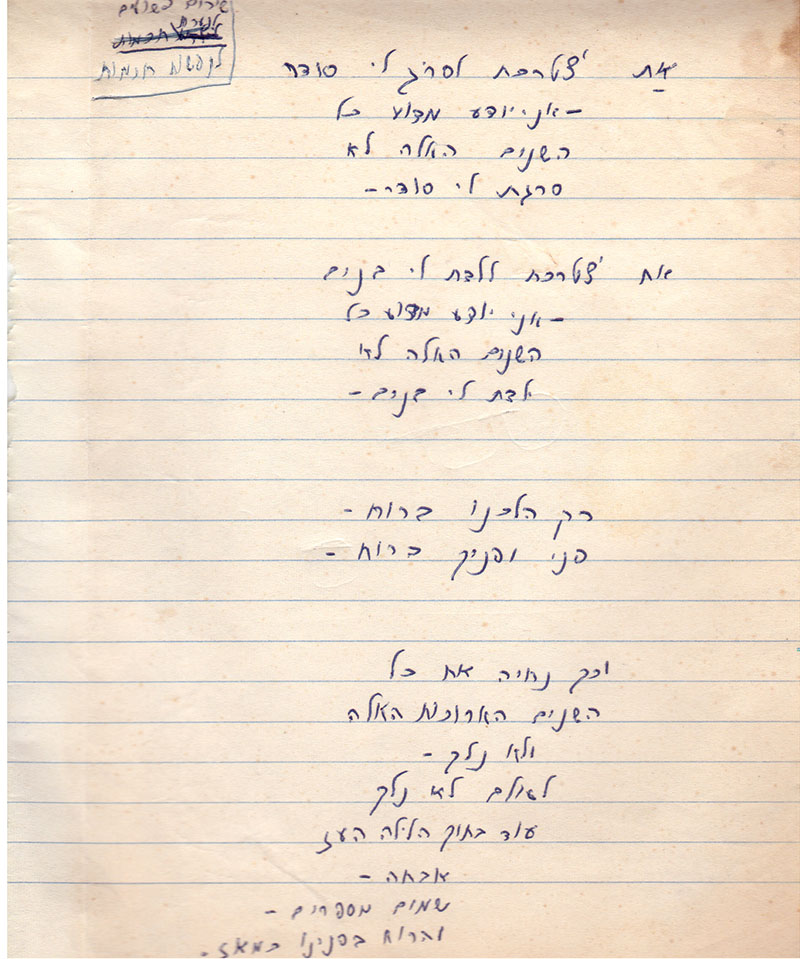 שירים פשוטים
לנערות
לנפשות חכמות
אַת צטרכת לסרֹג לי סודר
– אני יודע מדוע כל
השנים האלה לא
סרגת לי סודר –
את צטרכת ללדת לי בנים
– אני יודע מדוע כל
השנים האלה לא
ילדת לי בנים –
רק הלכנו ברוח –
פני ופניך ברוח –
וכך נחיה את כל
השנים הארוכות האלה
ולא נלך –
לעולם לא נלך
עוד בתוך הלילה העז
– שמים מספרים –
והרוח בפנינו כמאז –